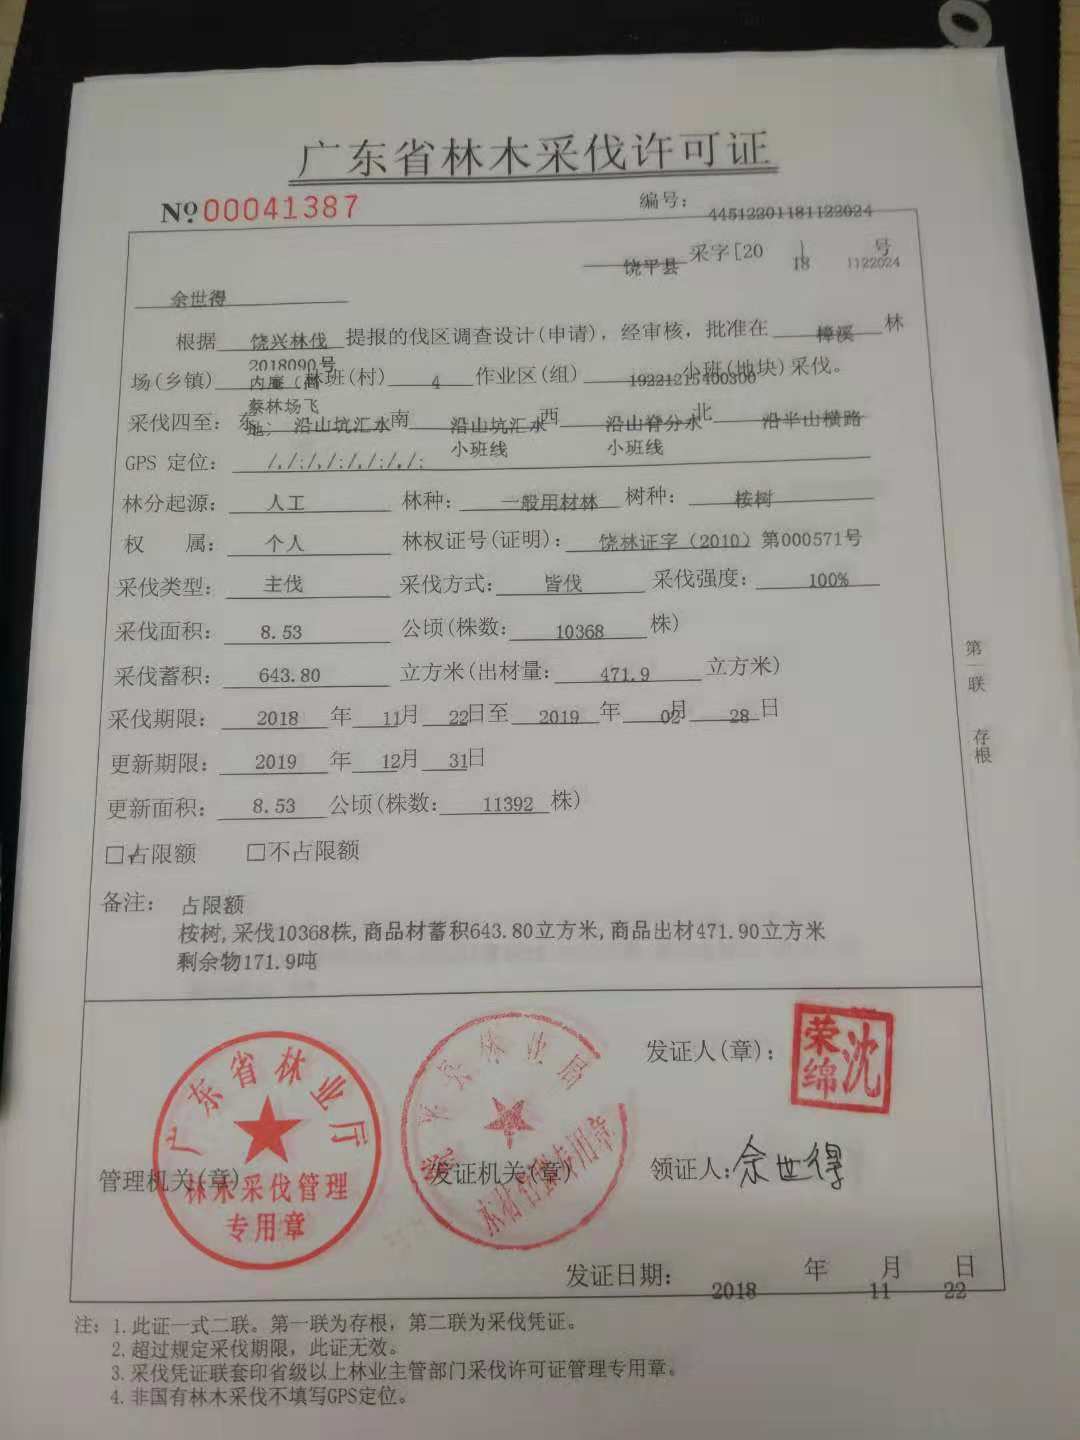 广东省林木采伐许可证
№ 00041387 编号: 44512201181122024
饶平县 采字[2018]1122024号
余世得
根据 饶兴林伐2018090号 提报的伐区调查设计(申请), 经审核, 批准在 樟溪 林
场(乡镇) 林班(村) 4 作业区(组) 19221215400300 小班(地块)采伐。
蔡林场飞地)
采伐四至: 东 沿山坑汇水 南 沿山坑汇水小班线 西 沿山脊分水小班线 北 沿半山横路
GPS 定位: /,/;/,/;/,/;/,/;
林分起源: 人工 林种: 一般用材林 树种: 桉树
权 属: 个人 林权证号(证明): 饶林证字(2010)第000571号
采伐类型: 主伐 采伐方式: 皆伐 采伐强度: 100%
采伐面积: 8.53 公顷(株数: 10368 株)
采伐蓄积: 643.80 立方米(出材量: 471.9 立方米)
采伐期限: 2018 年 11 月 22 日至 2019 年 02 月 28 日
更新期限: 2019 年 12 月 31 日
更新面积: 8.53 公顷(株数: 11392 株)
☑占限额 □不占限额
备注: 占限额
桉树,采伐10368株,商品材蓄积643.80立方米,商品出材471.90立方米
剩余物171.9吨
第一联 存根
广东省林业厅
林木采伐管理
专用章
管理机关(章)
林业局
发证机关(章)
发证人(章):
沈荣绵
领证人: 余世得
发证日期: 2018 年 11 月 22 日
注: 1.此证一式二联。第一联为存根, 第二联为采伐凭证。
2.超过规定采伐期限, 此证无效。
3.采伐凭证联套印省级以上林业主管部门采伐许可证管理专用章。
4.非国有林木采伐不填写GPS定位。